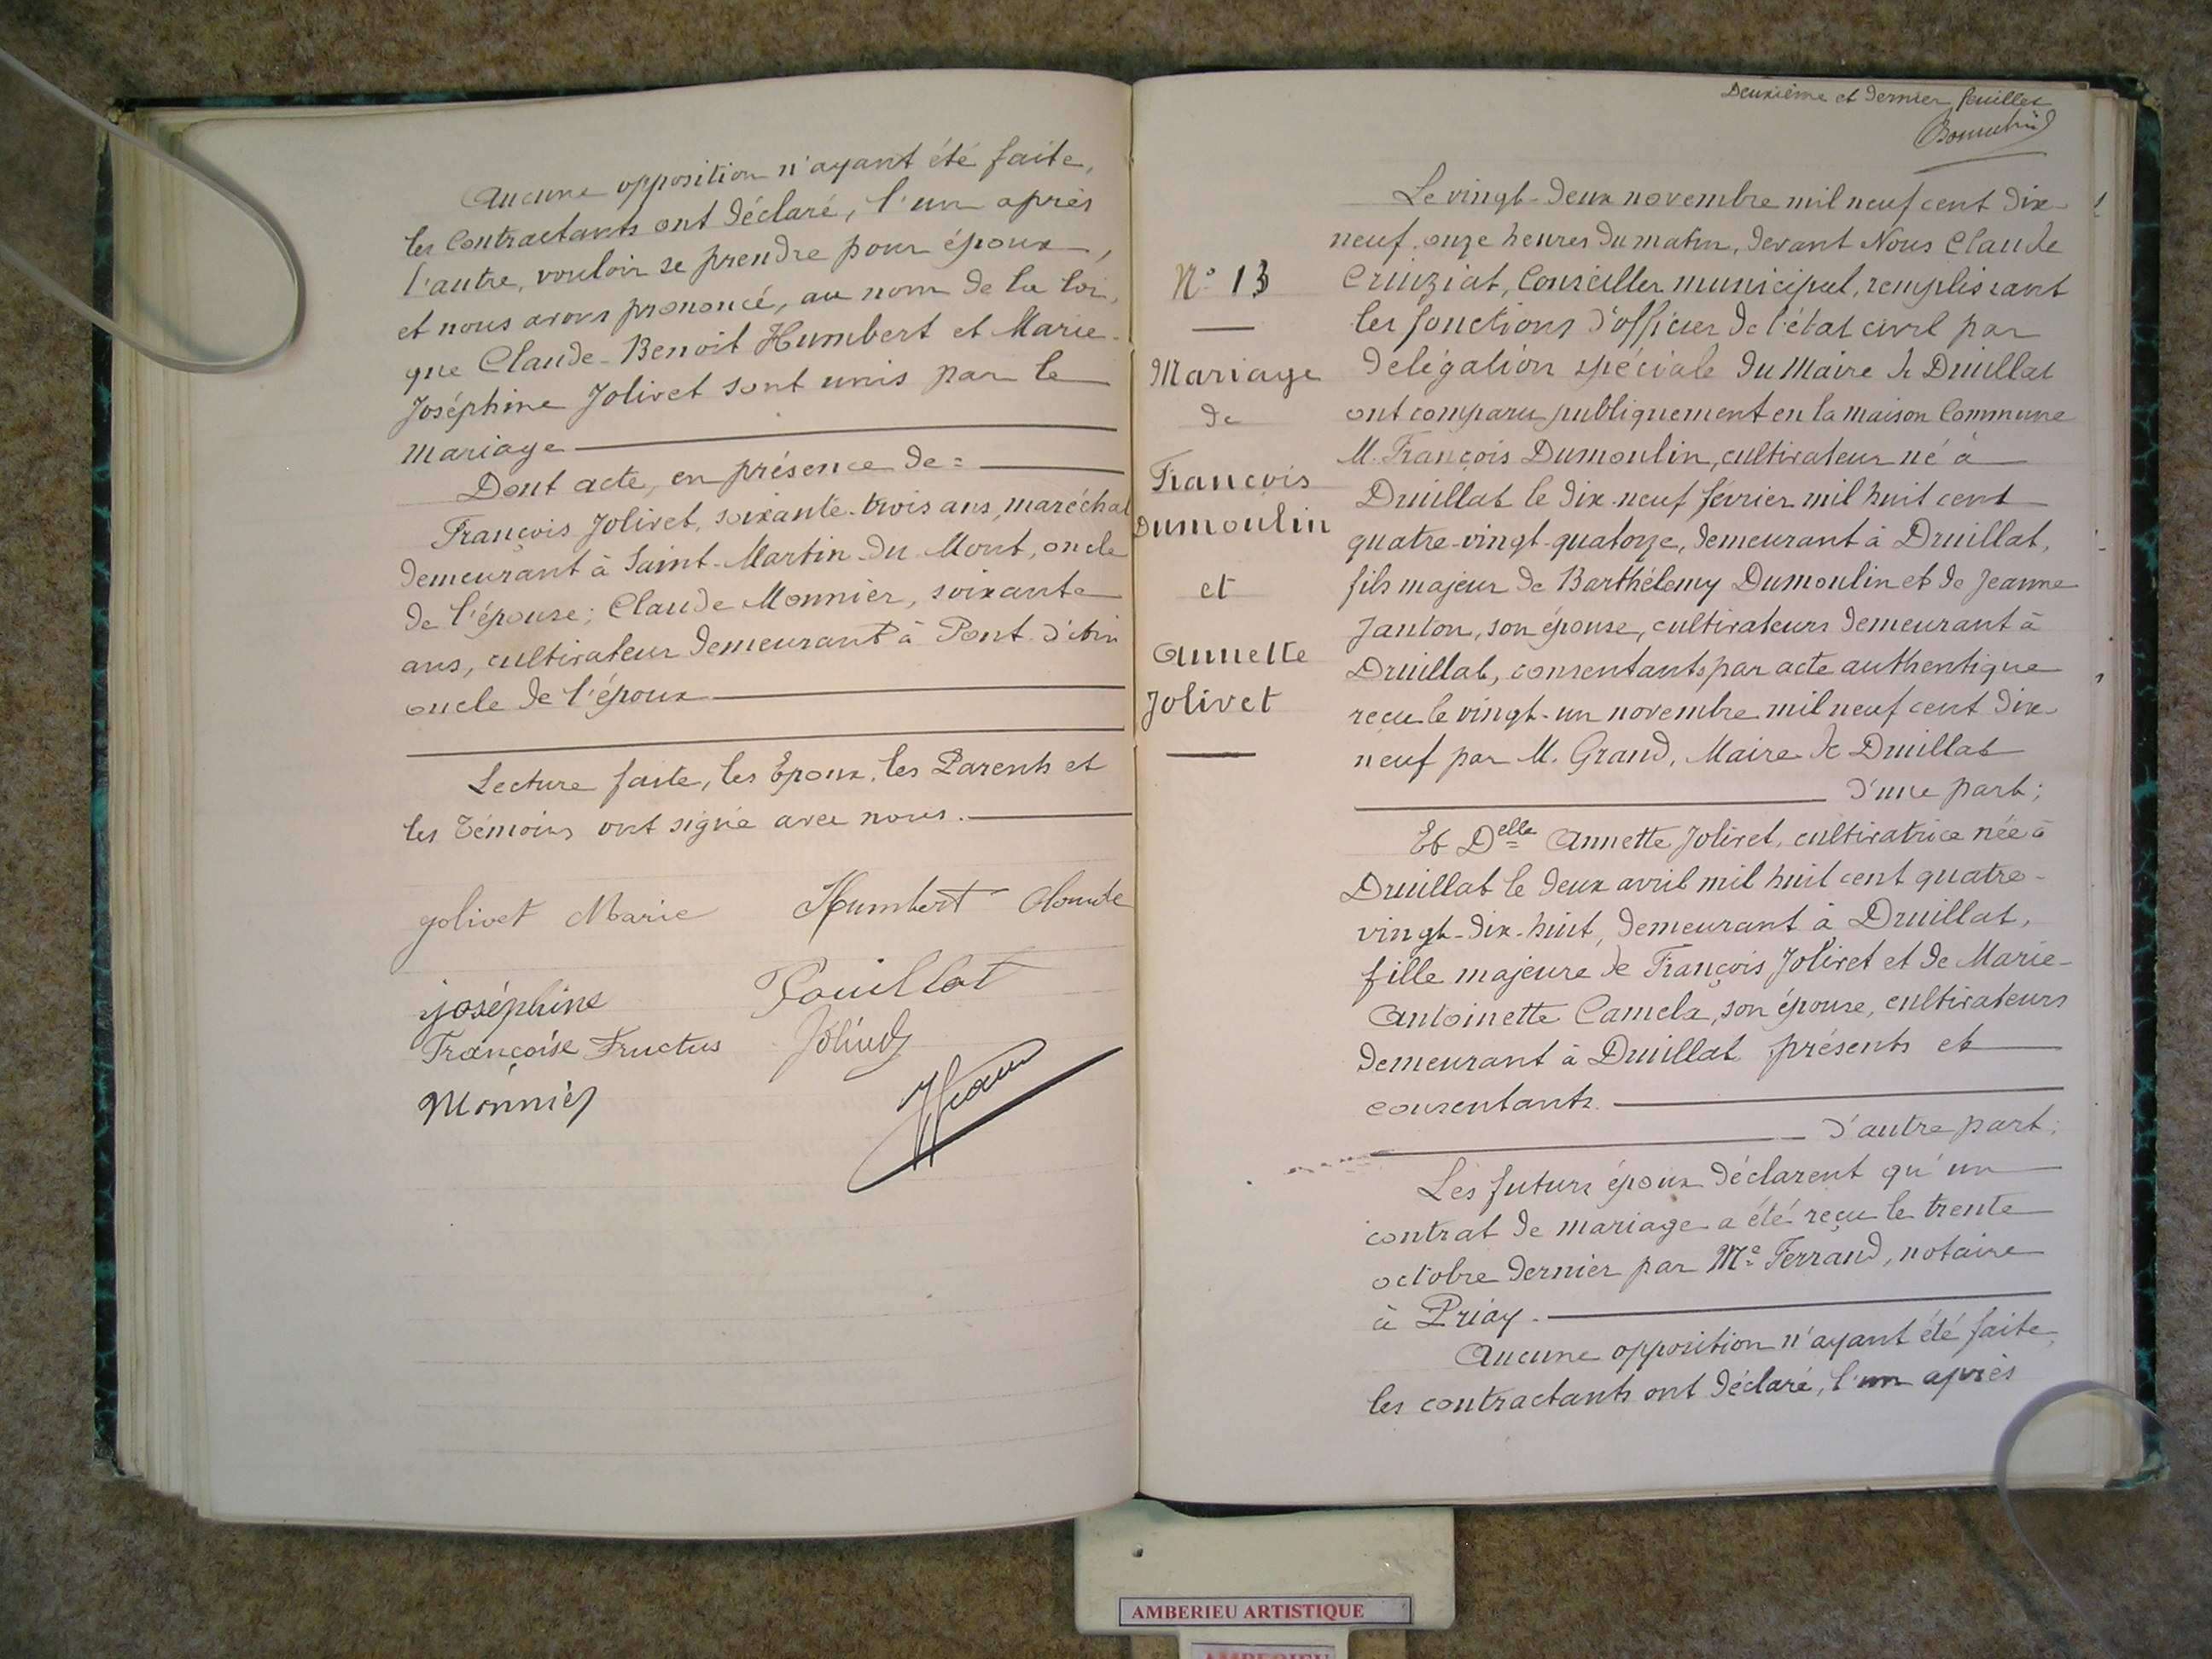 Aucune opposition n'ayant été faite,
les Contractants ont déclaré, l'un après
l'autre, vouloir se prendre pour époux,
et nous avons prononcé, au nom de la loi,
que Claude-Benoit Humbert et Marie-
Joséphine Jolivet sont unis par le
mariage
Dont acte, en présence de =
François Jolivet, soixante-trois ans, maréchal
demeurant à Saint-Martin-du-Mont, oncle
de l'épouse; Claude Monnier, soixante
ans, cultivateur demeurant à Pont d'Ain
oncle de l'époux
Lecture faite, les Epoux, les Parents et
les Témoins ont signé avec nous.
Jolivet Marie Humbert Claude
joséphine Pouillat
Françoise Fructus Jolivet
Monnier
Deuxième et dernier feuillet
Le vingt-deux novembre mil neuf cent dix-
neuf, onze heures du matin, devant Nous Claude
Cruiziat, Conseiller municipal, remplissant
les fonctions d'officier de l'état civil par
délégation spéciale du Maire de Druillat
ont comparu publiquement en la maison Commune
M. François Dumoulin, cultivateur né à
Druillat le dix-neuf février mil huit cent
quatre-vingt-quatorze, demeurant à Druillat,
fils majeur de Barthélemy Dumoulin et de Jeanne
Janton, son épouse, cultivateurs demeurant à
Druillat, consentants par acte authentique
reçu le vingt-un novembre mil neuf cent dix-
neuf par M. Grand, Maire de Druillat
d'une part;
Et Delle Annette Jolivet, cultivatrice née à
Druillat le deux avril mil huit cent quatre-
vingt-dix-huit, demeurant à Druillat,
fille majeure de François Jolivet et de Marie-
Antoinette Camela, son épouse, cultivateurs
demeurant à Druillat présents et
consentants.
d'autre part;
Les futurs époux déclarent qu'un
contrat de mariage a été reçu le trente
octobre dernier par Me Ferrand, notaire
à Priay.
Aucune opposition n'ayant été faite,
les contractants ont déclaré, l'un après
N° 13
Mariage
de
François
Dumoulin
et
Annette
Jolivet
AMBERIEU ARTISTIQUE
AMBERIEU